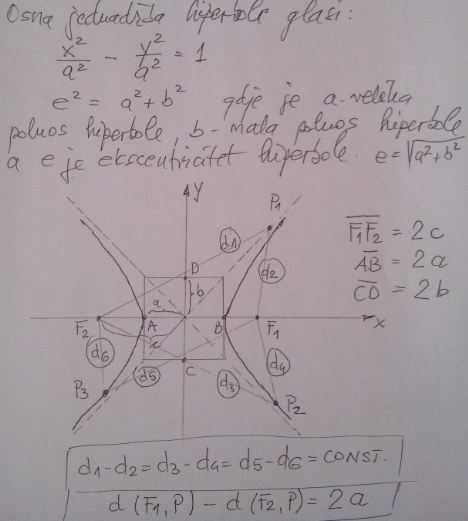 Osna jednadžba hiperbole glasi:
x²/a² - y²/a² = 1
e² = a² + b² gdje je a-velika
poluos hiperbole, b-mala poluos hiperbole
a e je ekscentricitet hiperbole. e=√a²+b²
y
P1
d1
F1F2 = 2c
d2
AB = 2a
D
CD = 2b
a
b
F2
A
B
F1
x
c
d6
C
d4
P3
d5
d3
P2
d1-d2=d3-d4=d5-d6=CONST.
d(F1,P) - d(F2,P) = 2a